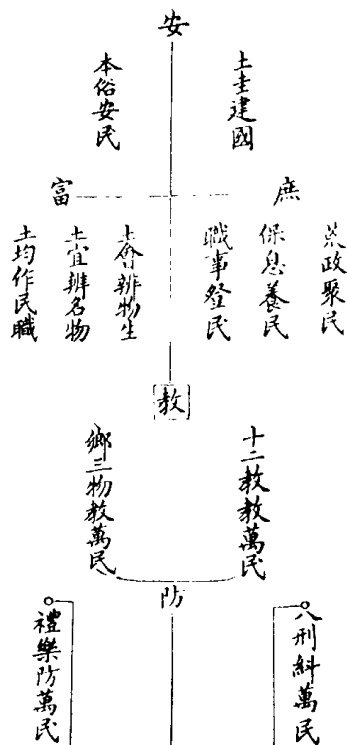 安
土圭建國
本俗安民
庶
富
荒政聚民
保息養民
職事登民
土會辨物生
土宜辨名物
土均作民職
教
十二教教萬民
鄉三物教萬民
防
八刑糾萬民
禮樂防萬民